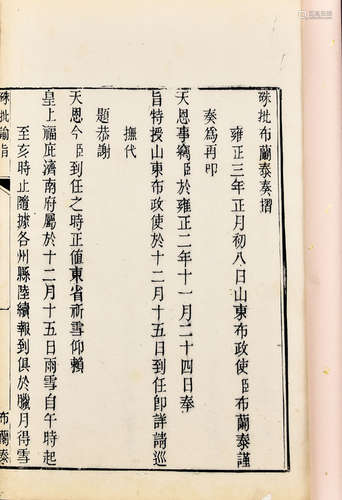 硃批布蘭泰奏摺
雍正三年正月初八日山東布政使臣布蘭泰謹
奏為再叩
天恩事竊臣於雍正二年十一月二十四日奉
旨特授山東布政使於十二月十五日到任即詳請巡
撫代
題恭謝
天恩今臣到任之時正值東省祈雪仰賴
皇上福庇濟南府屬於十二月十五日雨雪自午時起
至亥時止隨據各州縣陸續報到俱於臘月得雪
硃批諭旨
布蘭泰